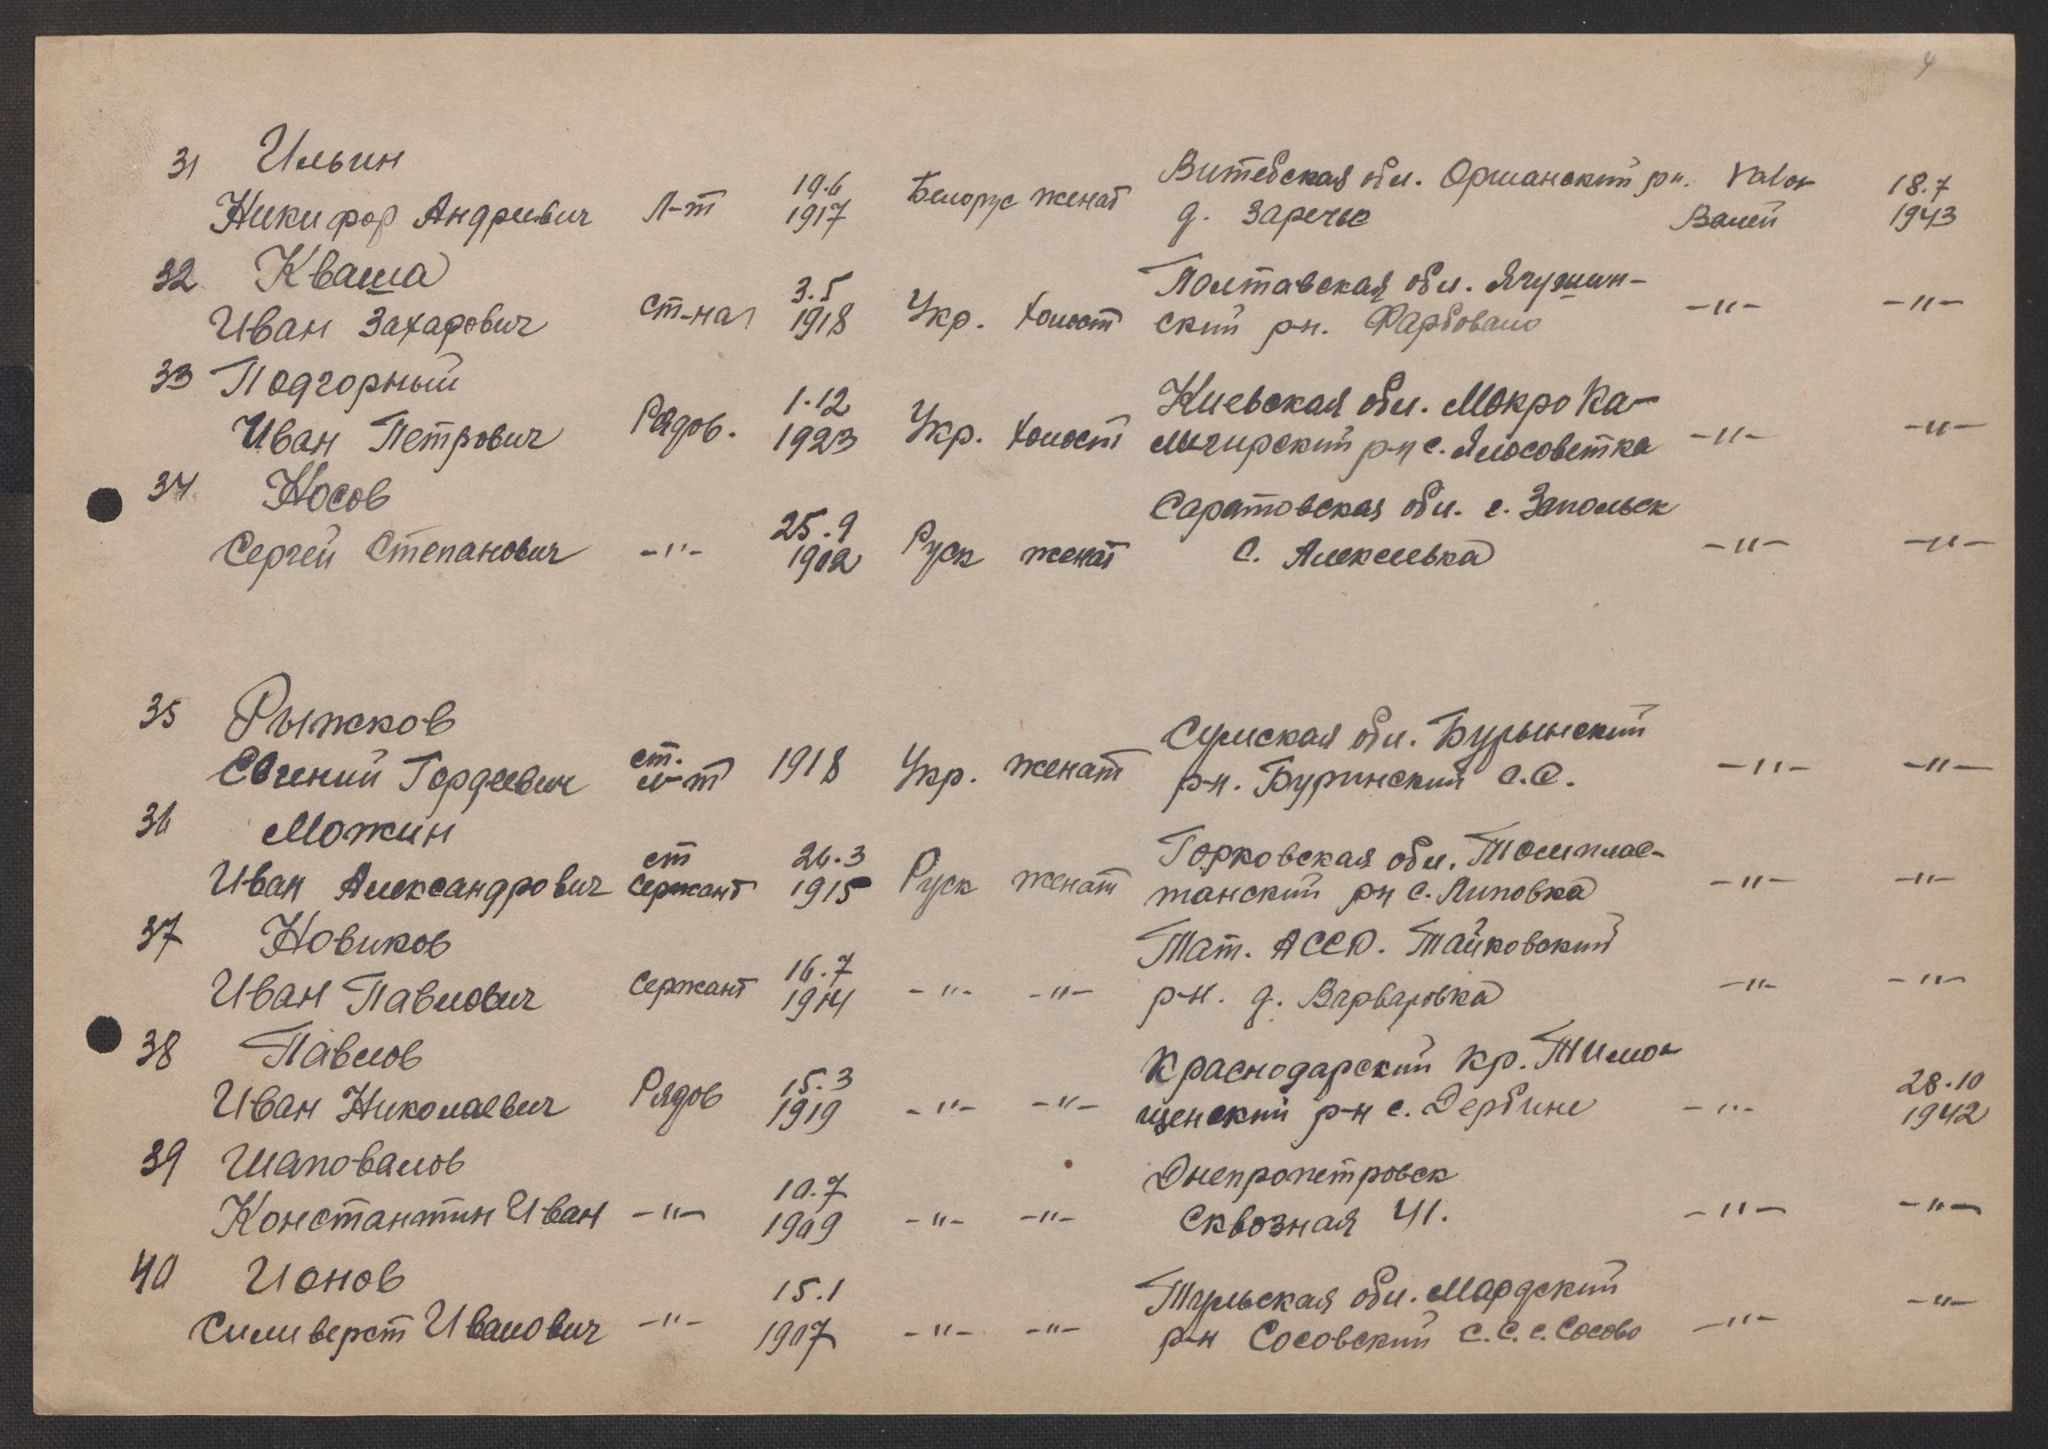 4
31 Ильин
Никифор Андриевич Л-т 19.6 1917 Белорус женат Витебская обл. Оршанский рн. д. Заречье Valor Валей 18.7 1943
32 Кваша
Иван Захарович ст-на 3.5 1918 Укр. холост Полтавская обл. Ячушин-
ский р-н. Фарбовано -"- -"-
33 Подгорный
Иван Петрович Рядов. 1.12 1923 Укр. холост Киевская обл. Мокро Ка-
лигирский р-н с. Ялосоветка -"- -"-
34 Носов
Сергей Степанович -"- 25.9 1902 Руск женат Саратовская обл. с. Запольск
с. Алексеевка -"- -"-
35 Рыжков
Евгений Гордеевич ст. л-т 1918 Укр. женат Сумская обл. Бурынский
р-н. Буринский С.С. -"- -"-
36 Можин
Иван Александрович ст сержант 26.3 1915 Руск женат Горковская обл.
р-н с. Липовка -"- -"-
37 Новиков
Иван Павлович сержант 16.7 1914 -"- -"- Тат. АССР. Тайковский
р-н. д. Варваровка -"- -"-
38 Павлов
Иван Николаевич Рядов 15.3 1919 -"- -"- Краснодарский кр. Тимо-
щенский р-н с. Дербине -"- 28.10 1942
39 Шаповалов
Константин Иван -"- 10.7 1909 -"- -"- Днепропетровск
Сквозная 41. -"- -"-
40 Ионов
Силиверст Иванович -"- 15.1 1907 -"- -"- Тульская обл. Мардский
р-н Сосовский С.С. с. Сосово -"- -"-